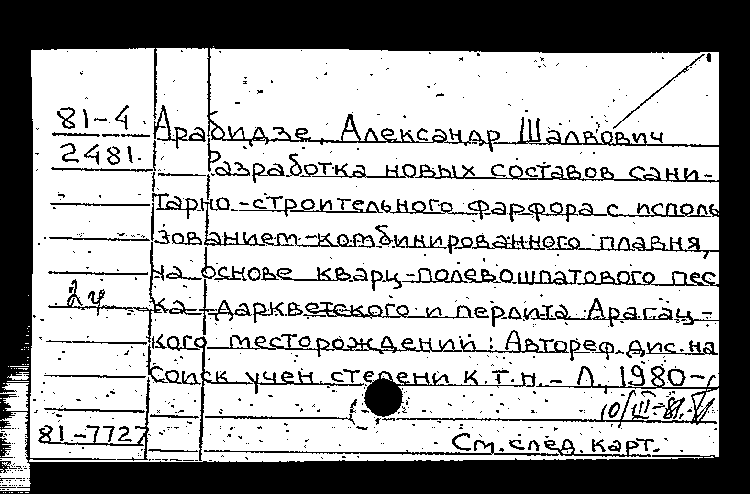 81-4 Арабидзе, Александр Шалвович
2481. Разработка новых составов сани-
тарно-строительного фарфора с исполь
зованием комбинированного плавня,
на основе кварц-полевошпатового пес
2ч ка Даркветского и перлита Арагац-
кого месторождений: Автореф. дис. на
соиск учен. степени к.т.н. - Л., 1980-
10/III-81.
81-7727 См. след. карт.